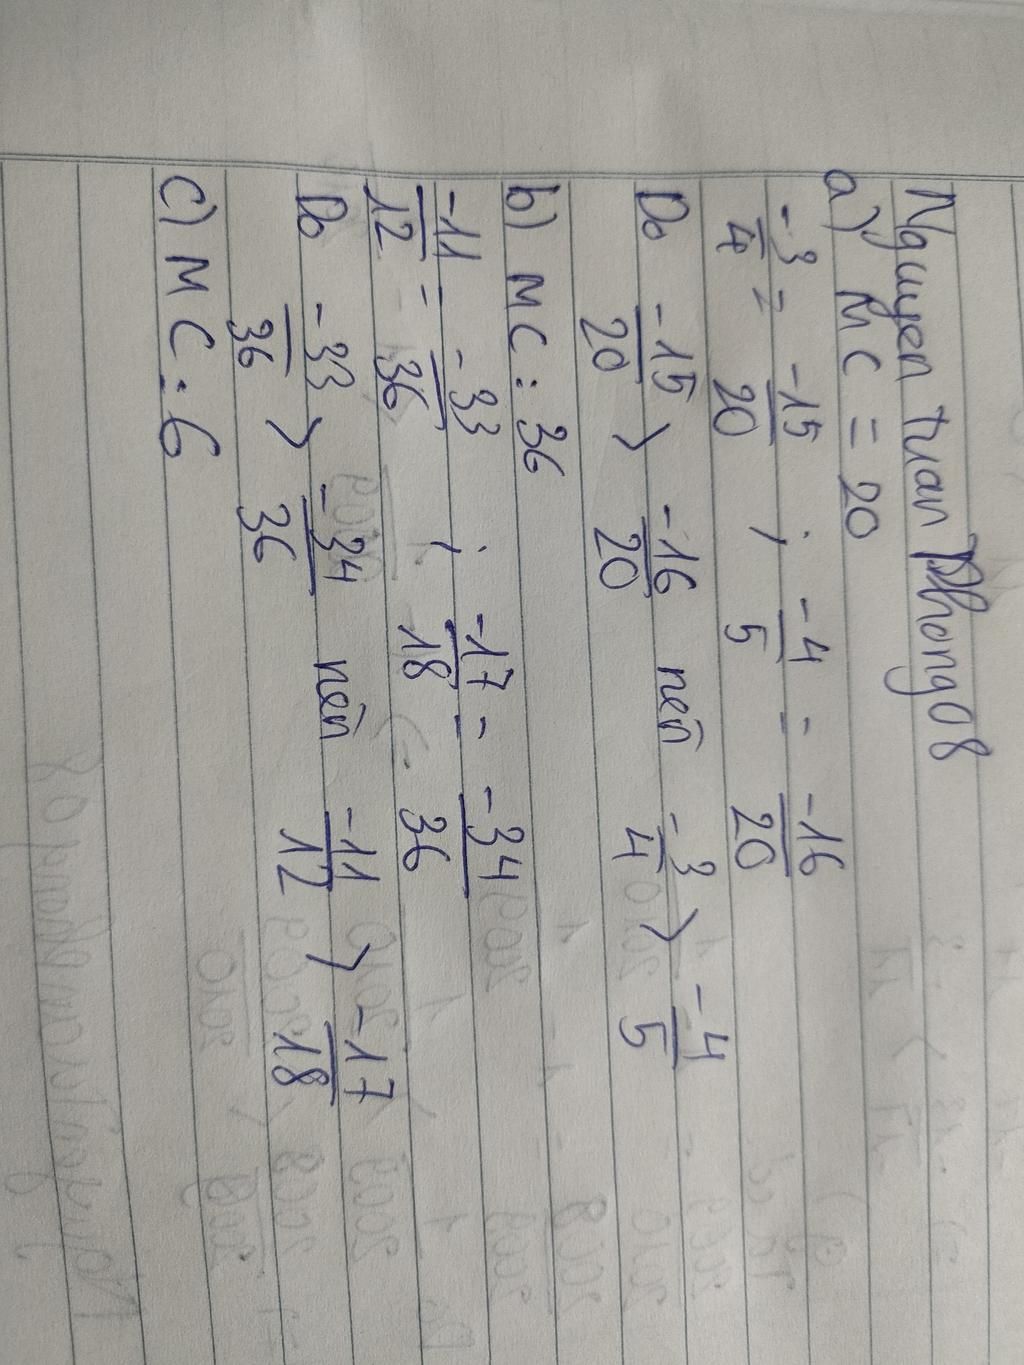 Nguyen tuan Phong 08
a) MC = 20
-3/4 = -15/20 ; -4/5 = -16/20
Do -15/20 > -16/20 nên -3/4 > -4/5
b) MC: 36
-11/12 = -33/36 ; -17/18 = -34/36
Do -33/36 > -34/36 nên -11/12 > -17/18
c) MC: 6